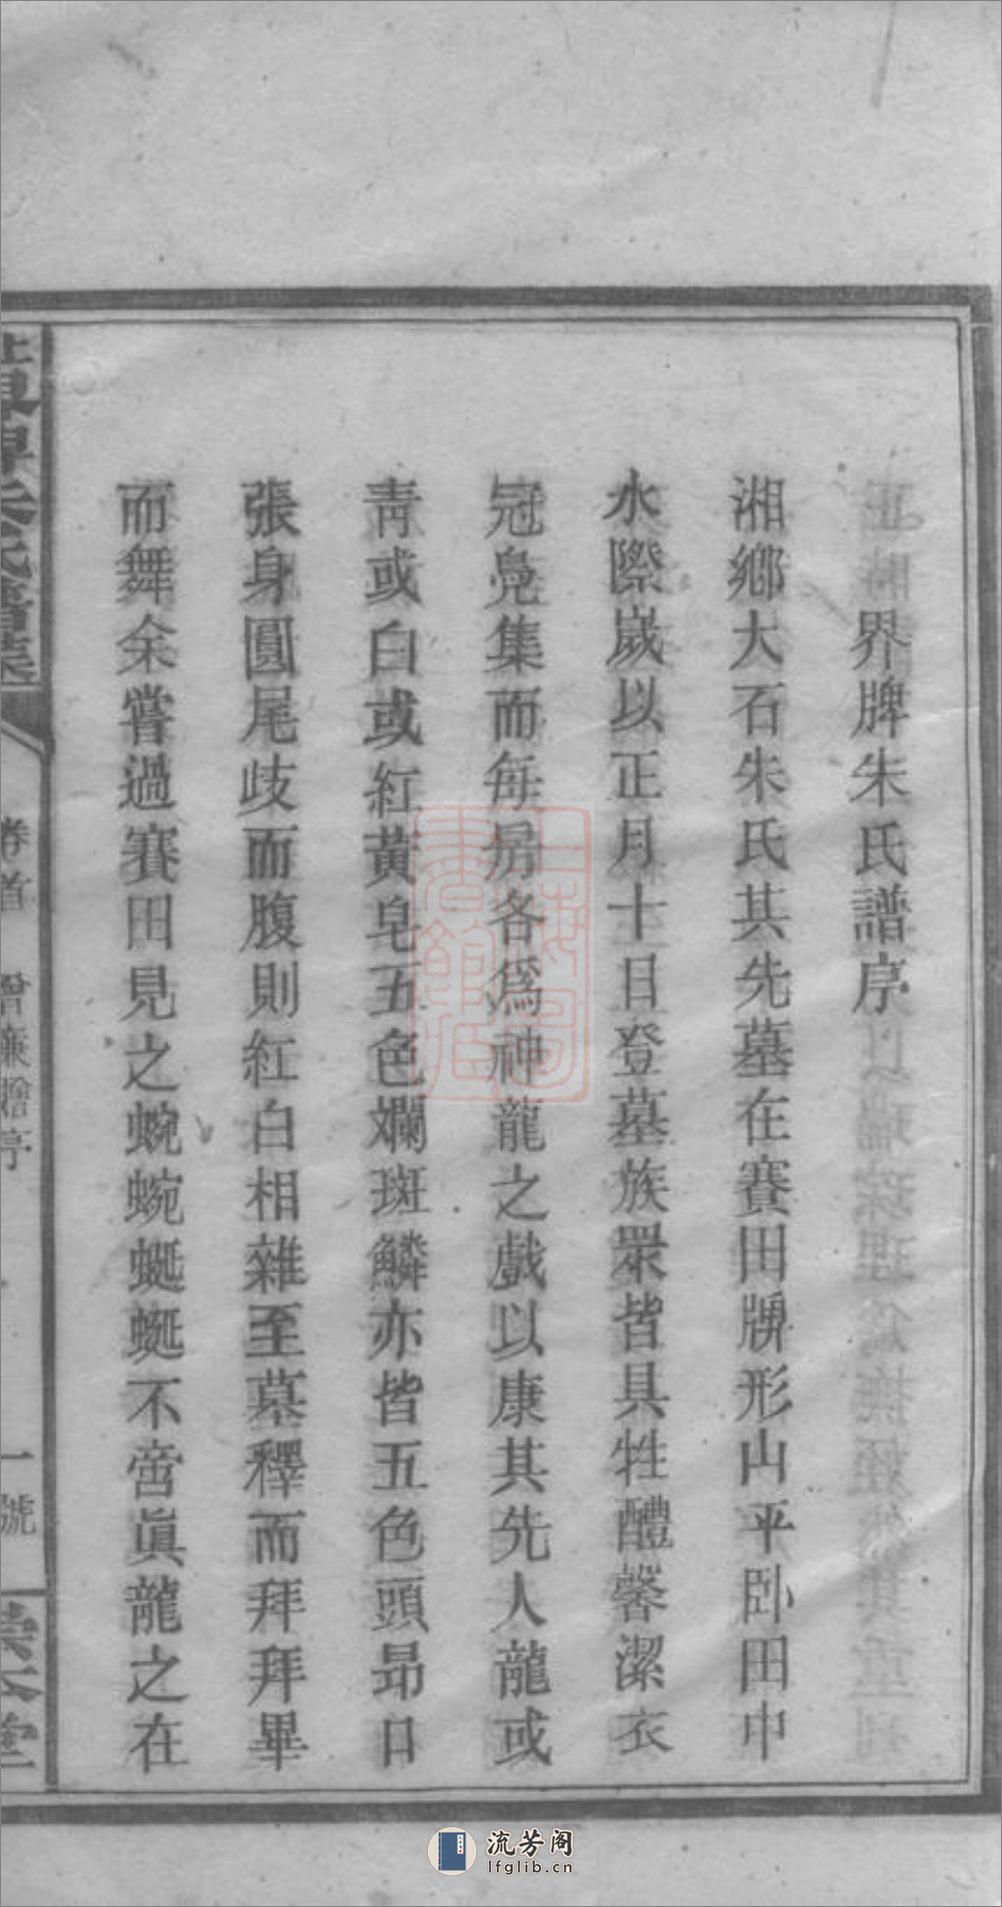 界牌朱氏譜序
湘鄉大石朱氏其先墓在賽田牌形山平臥田中
水際嵗以正月十日登墓族眾皆具牲醴馨潔衣
冠鳧集而每房各爲神龍之戲以康其先人龍或
青或白或紅黃皂五色斕斑鱗亦皆五色頭昂口
張身圓尾歧而腹則紅白相雜至墓釋而拜拜畢
而舞余嘗過賽田見之蜿蜿蜒蜒不啻眞龍之在
朱氏
卷首
曾廉膽序
一號
堂
上海圖書館藏
流芳阁
lfglib.cn